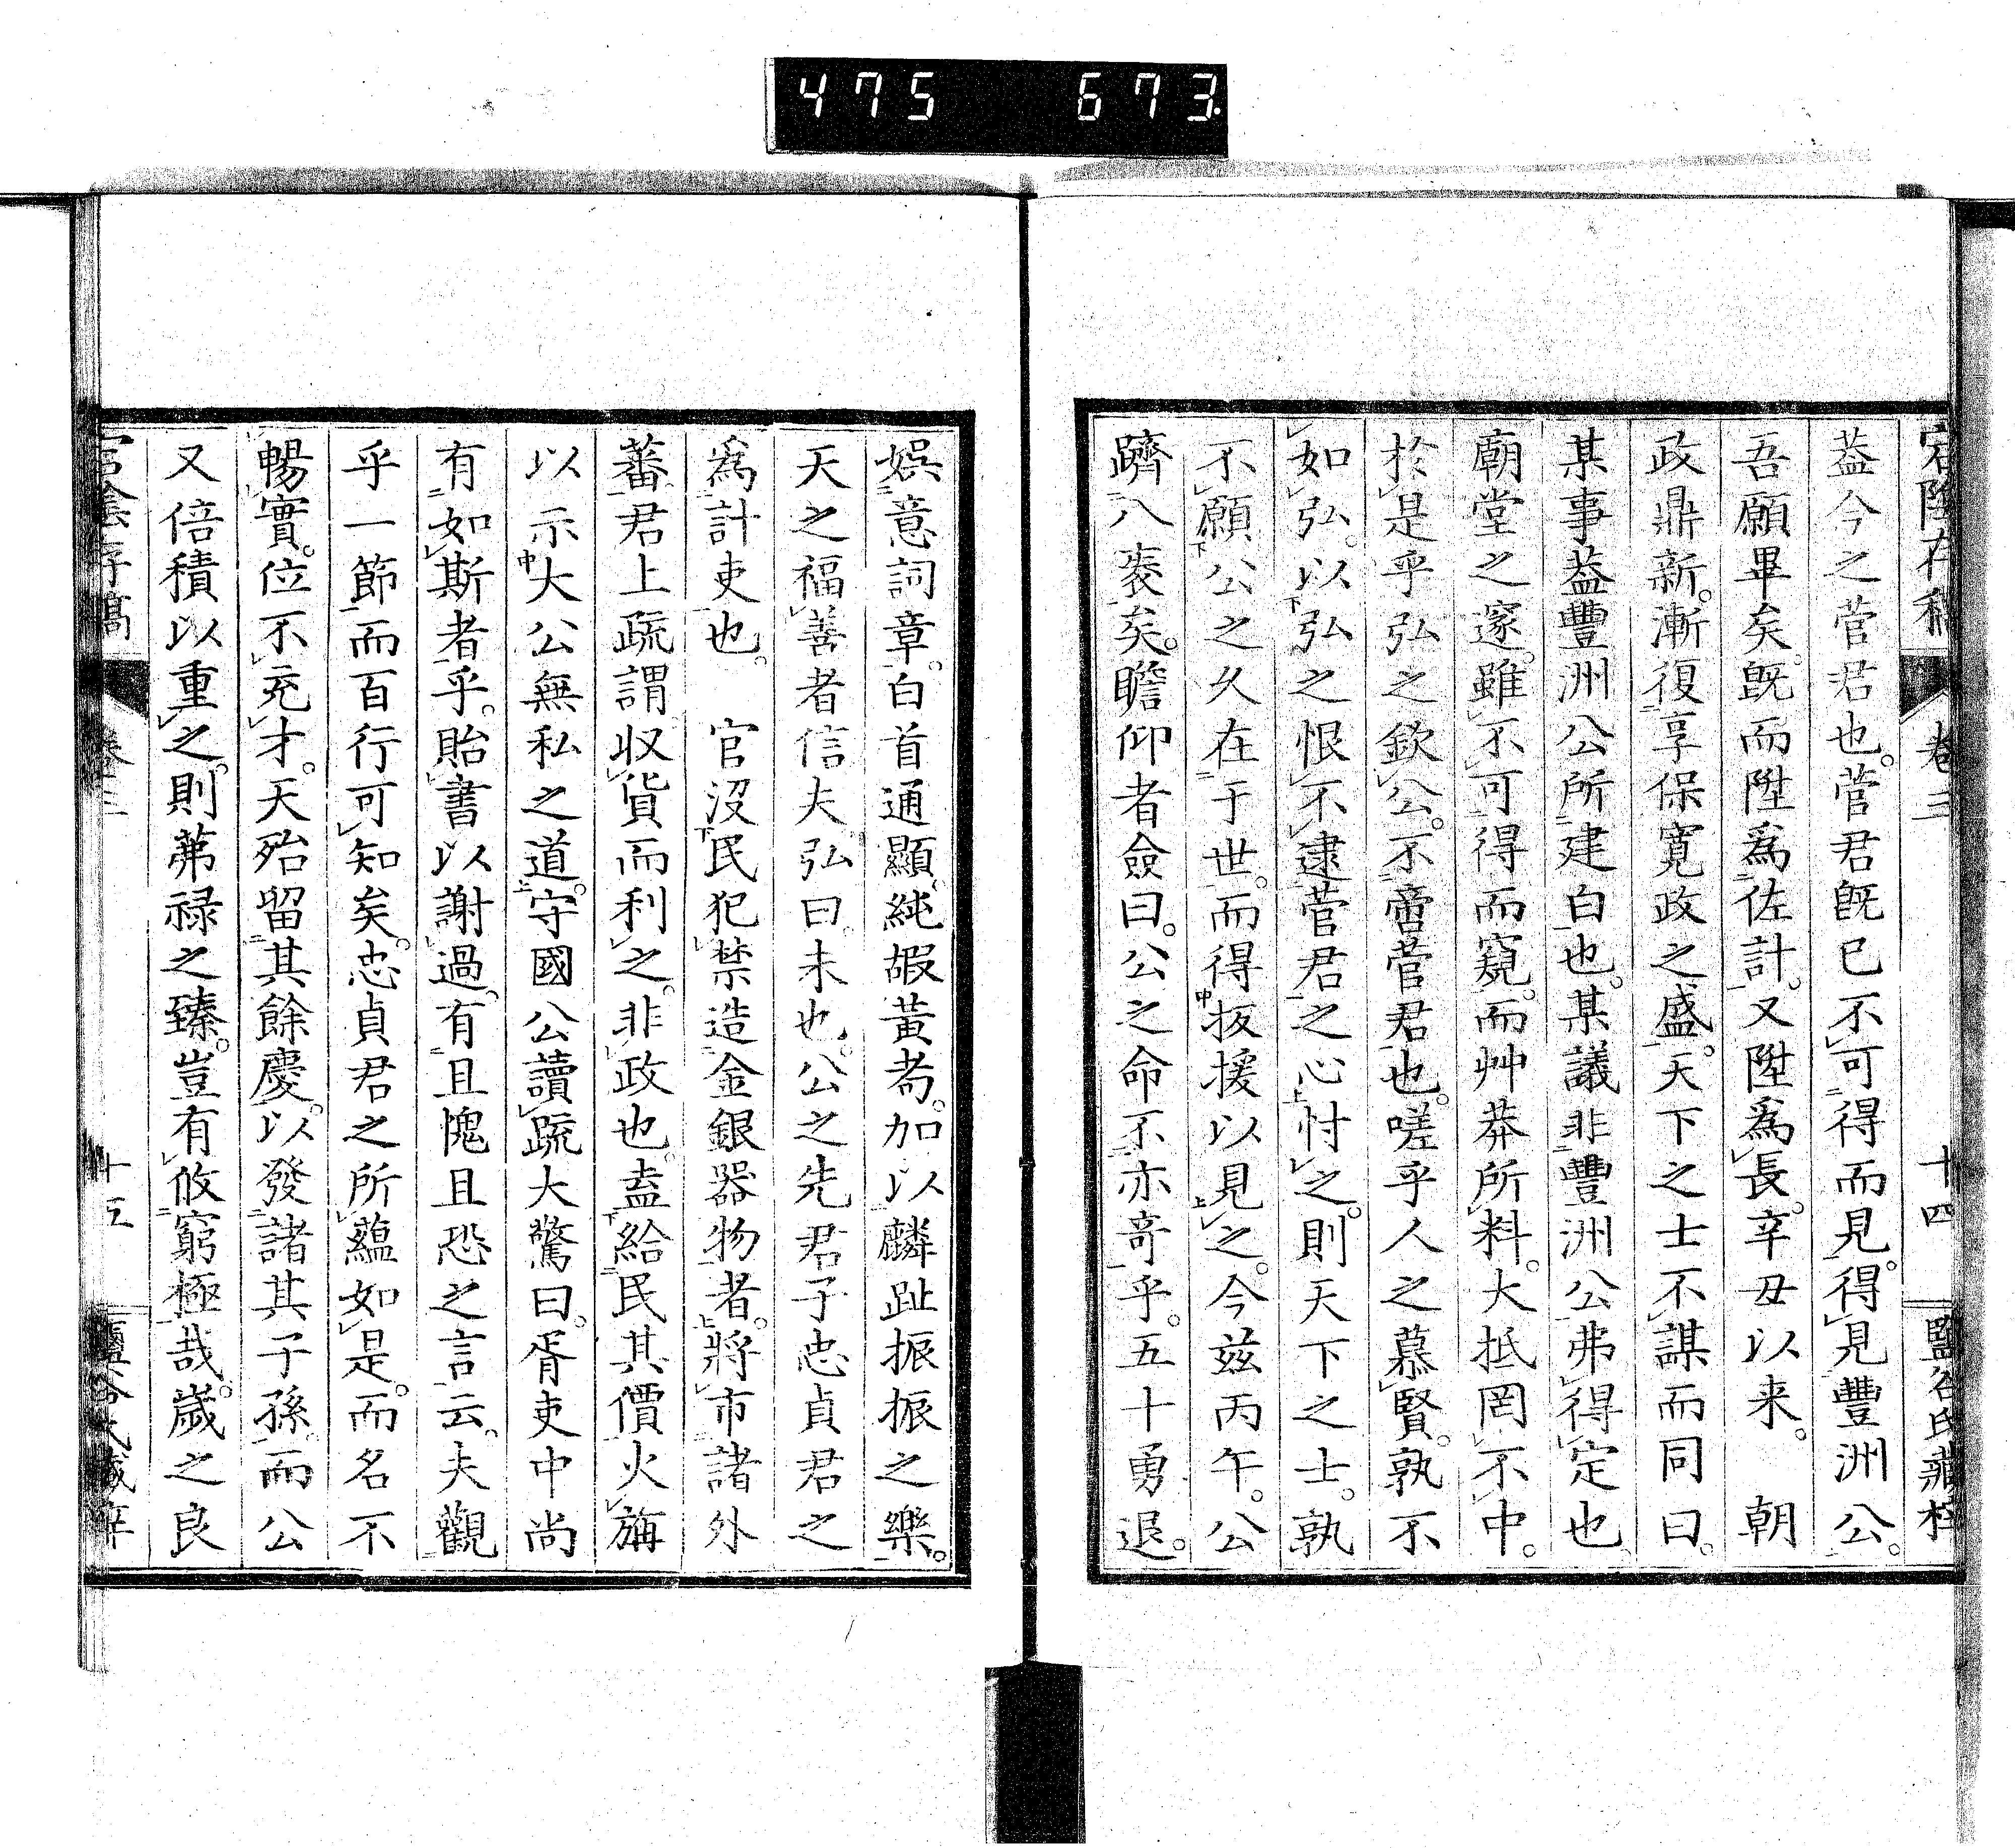 475 673
宕陰存稿 卷三 十四 鹽谷氏藏梓
葢今之菅君也。菅君既已不可得而見。得見豐洲公。
吾願畢矣。既而陞爲佐計。又陞爲長。辛丑以来。 朝
政鼎新。漸復享保寬政之盛。天下之士不謀而同曰。
某事葢豐洲公所建白也。某議非豐洲公弗得定也。
廟堂之邃。雖不可得而窺。而艸莽所料。大抵罔不中。
於是乎弘之欽公。不啻菅君也。嗟乎人之慕賢。孰不
如弘。以弘之恨不逮菅君之心忖之。則天下之士。孰
不願公之久在于世。而得扳援以見之。今兹丙午。公
躋八袠矣。瞻仰者僉曰。公之命不亦奇乎。五十勇退。
娯意詞章。白首通顯。純嘏黃耇。加以麟趾振振之樂。
天之福善者信夫。弘曰。未也。公之先君子忠貞君之
爲計吏也。 官沒民犯禁造金銀器物者。將市諸外
蕃。君上疏謂收貨而利之。非政也。盍給民其價火旃
以示大公無私之道。守國公讀疏大驚曰。胥吏中尚
有如斯者乎。貽書以謝過。有且愧且恐之言云。夫觀
乎一節而百行可知矣。忠貞君之所蘊如是。而名不
暢實。位不充才。天殆留其餘慶。以發諸其子孫。而公
又倍積以重之。則茀禄之臻。豈有攸窮極哉。歲之良
宕陰存稿 卷三 十五 鹽谷氏藏梓